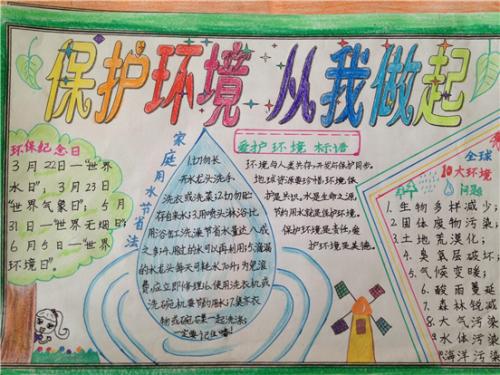 保护环境 从我做起
环保纪念日
3月22日—“世界
水日”；3月23日
“世界气象日”；5月
31日—“世界无烟日”；
6月5日—“世界
环境日”。
家庭用水节省法
1.切勿长
开水龙头洗手、
洗衣或洗菜；2.切勿贮
存自来水；3.用喷头淋浴比
用浴缸洗澡节省水量达八成
之多；4.用过的水可以再利用；5.滴漏
的水龙头每天可耗水70升，为免浪
费，应立即修理；6.使用洗衣机或
洗碗机要节约用水；7.集齐衣
物或碗碟一起洗涤；
一定要记住哦！
爱护环境 标语
环境与人类共存，开发与保护同步。
地球资源要珍惜，环境保
护是关键。水是生命之源，
节约用水就是保护环境。
保护环境是责任，爱
护环境是美德。
全球
10大环境
问题
1. 生物多样减少；
2. 固体废物污染；
3. 土地荒漠化；
4. 臭氧层破坏
5. 气候变暖；
6. 酸雨蔓延
7. 森林锐减
8. 大气污染
9. 水体污染
海洋污染